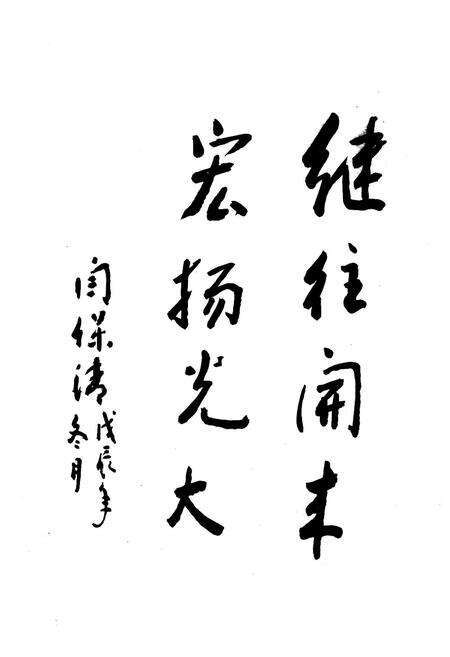 继往開来
宏扬光大
闫保清
戊辰年
冬月